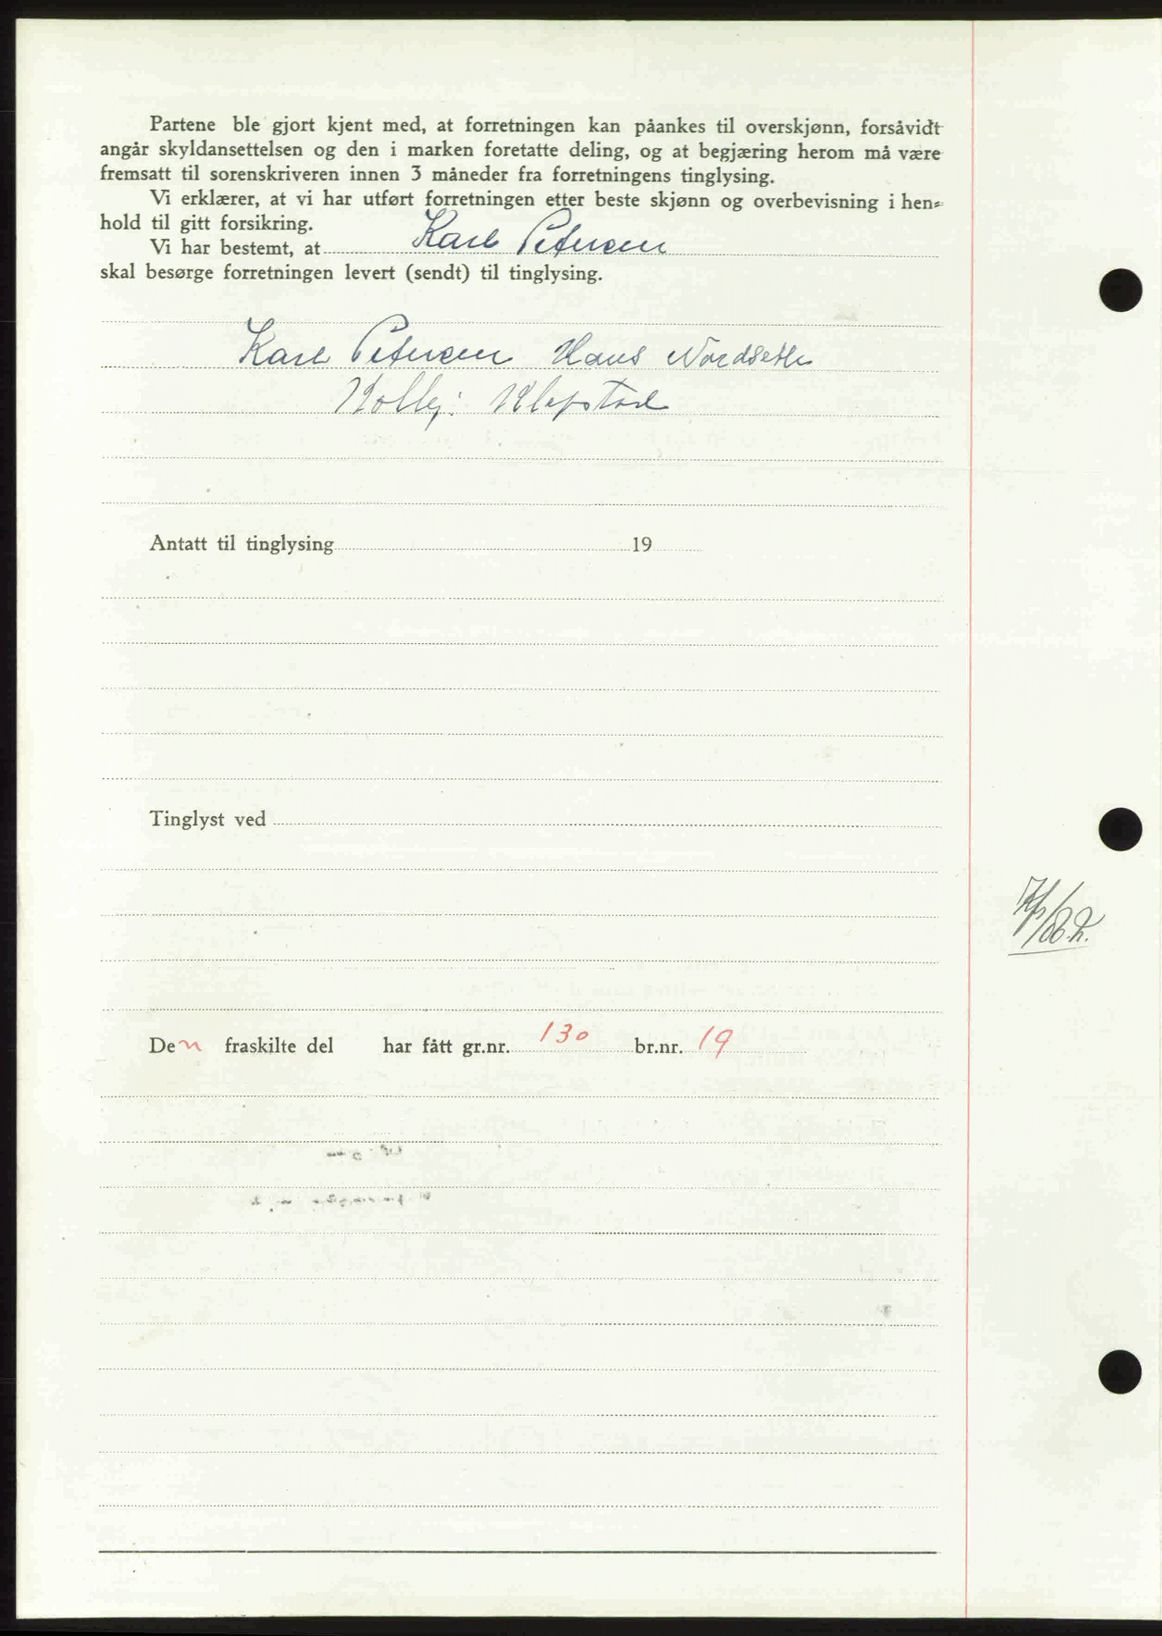 Partene ble gjort kjent med, at forretningen kan påankes til overskjønn, forsåvidt
angår skyldansettelsen og den i marken foretatte deling, og at begjæring herom må være
fremsatt til sorenskriveren innen 3 måneder fra forretningens tinglysing.
Vi erklærer, at vi har utført forretningen etter beste skjønn og overbevisning i hen-
hold til gitt forsikring.
Vi har bestemt, at Karl Petersen
skal besørge forretningen levert (sendt) til tinglysing.
Karl Petersen Hans Nordseth
Klopstad
Antatt til tinglysing 19
Tinglyst ved
Den fraskilte del har fått gr.nr. 130 br.nr. 19